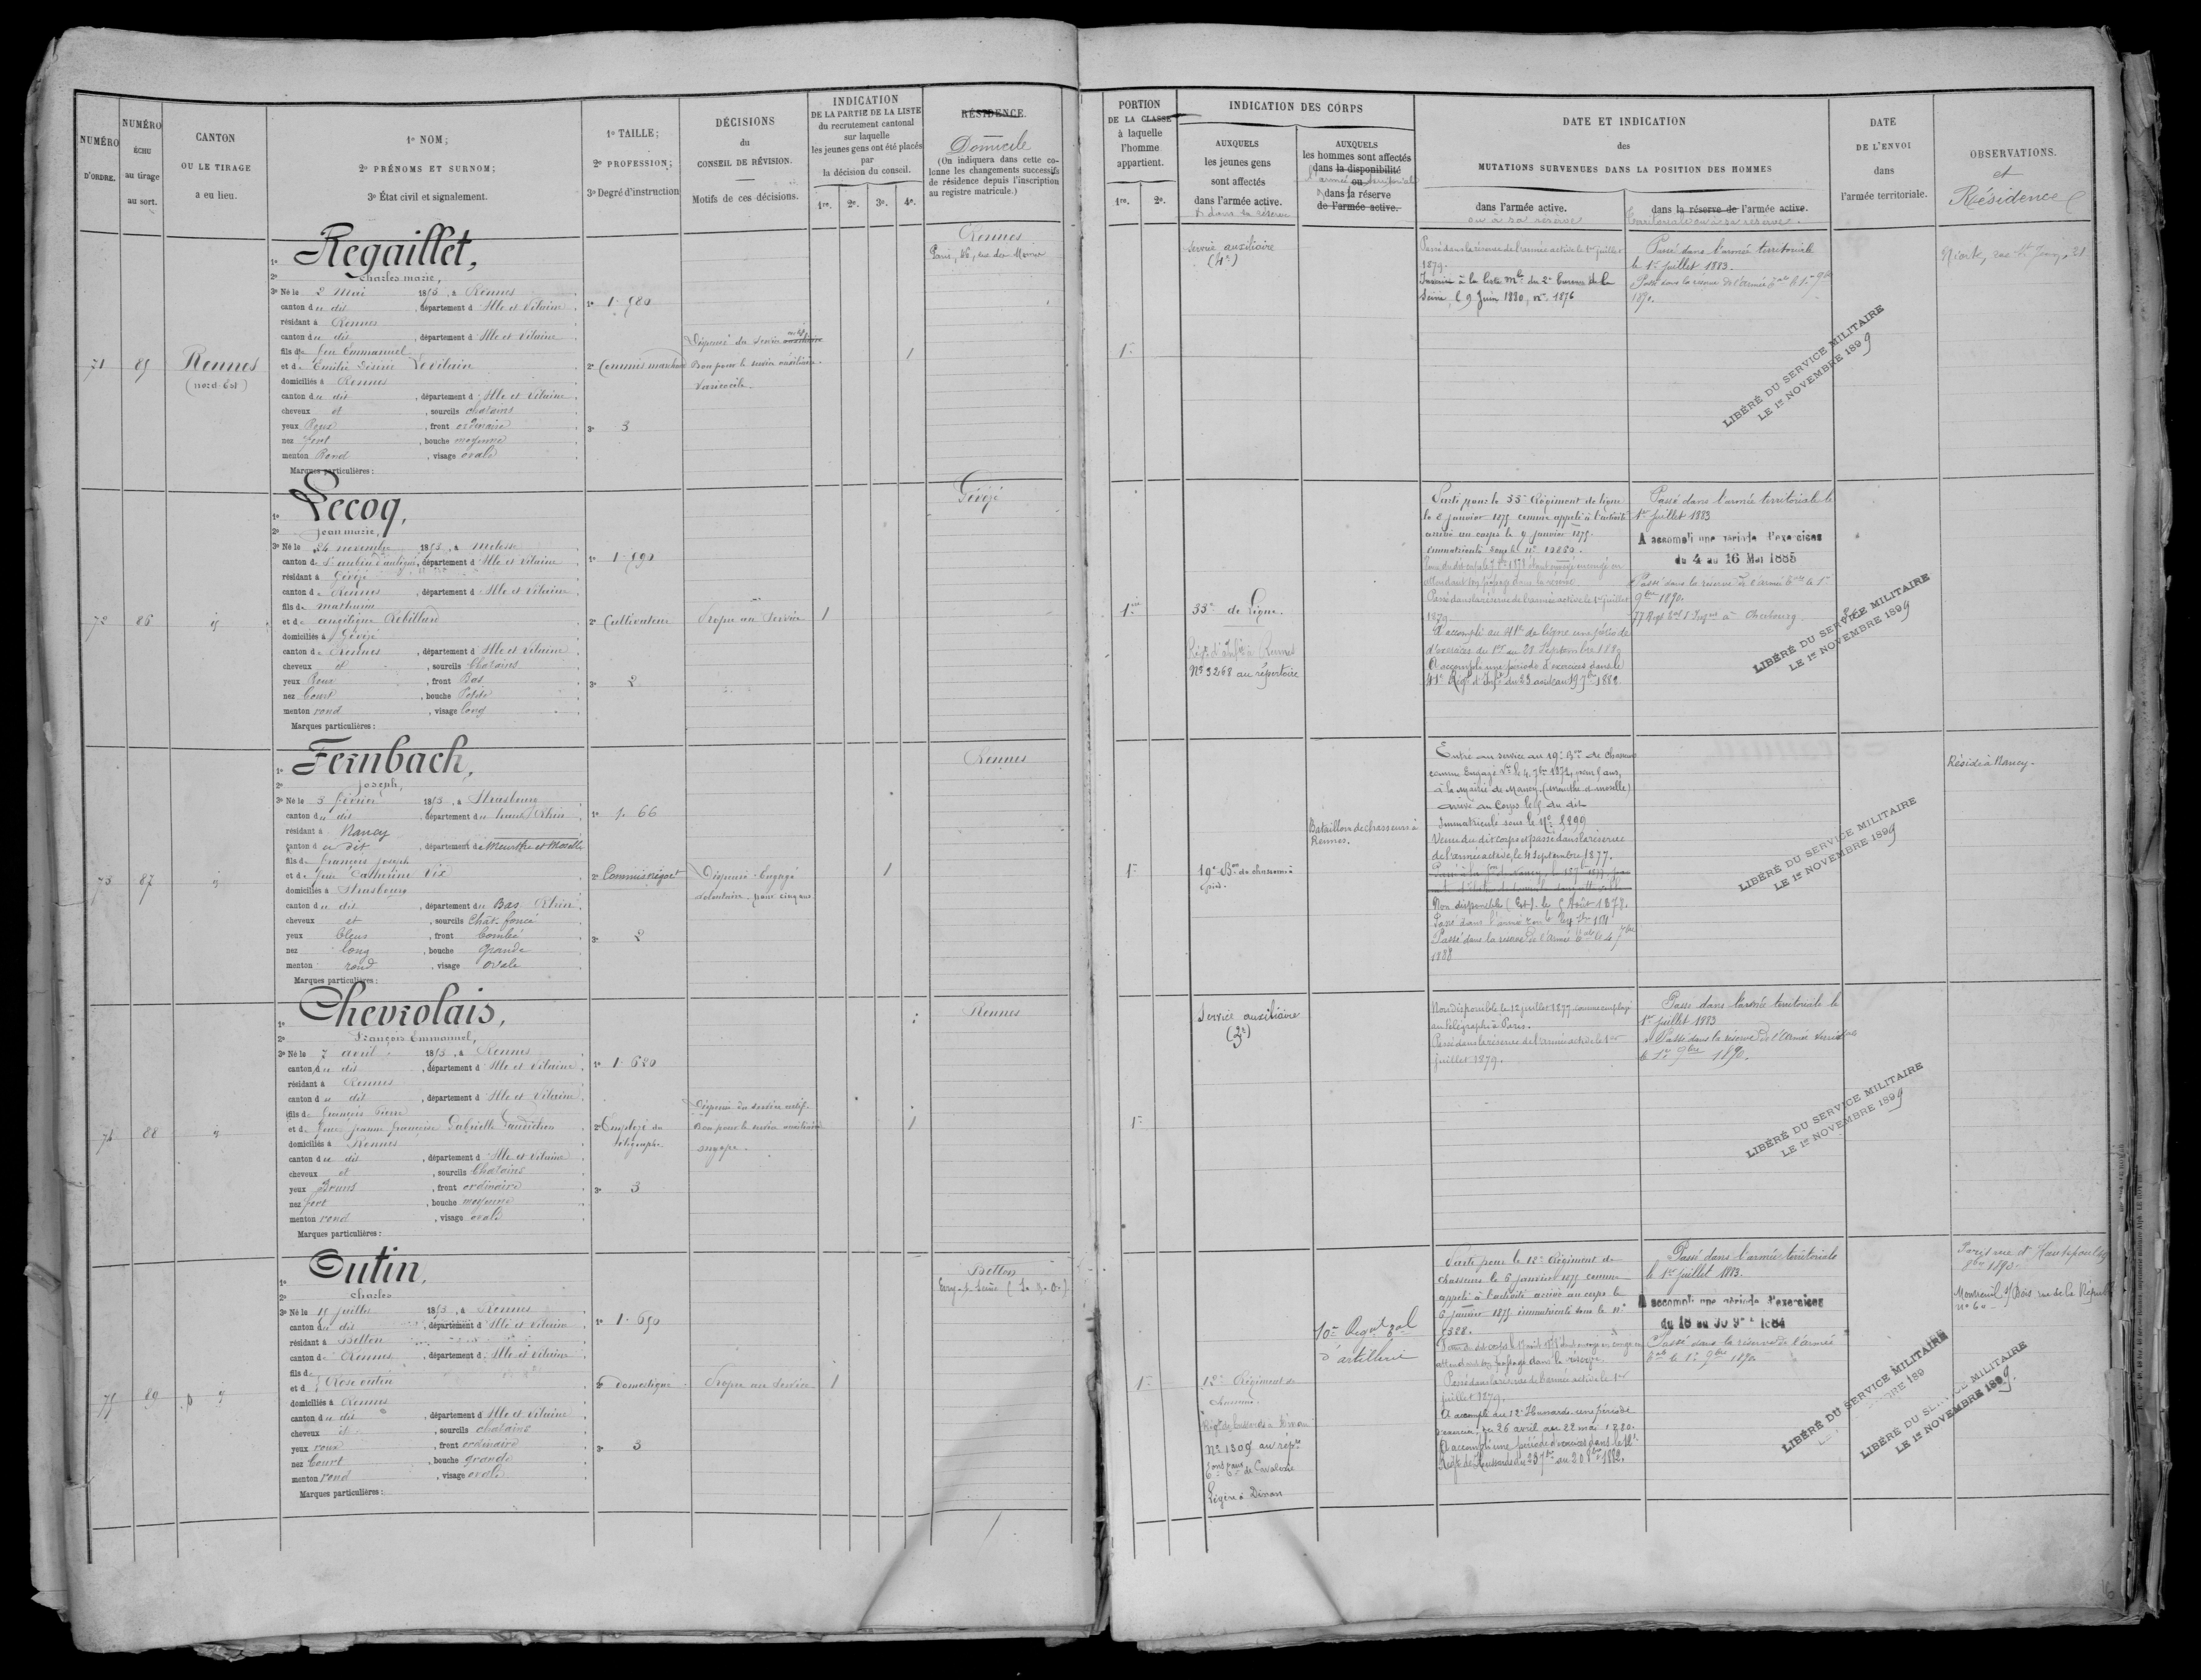 NUMÉRO D'ORDRE.
NUMÉRO ÉCHU au tirage au sort.
CANTON OU LE TIRAGE a eu lieu.
1º NOM;
2º PRÉNOMS ET SURNOM;
3º État civil et signalement.
1º TAILLE;
2º PROFESSION;
3º Degré d'instruction
DÉCISIONS
du
CONSEIL DE RÉVISION.
Motifs de ces décisions.
INDICATION
DE LA PARTIE DE LA LISTE
du recrutement cantonal
sur laquelle
les jeunes gens ont été placés
par
la décision du conseil.
1re. 2e. 3e. 4e.
RÉSIDENCE.
Domicile
(On indiquera dans cette co-
lonne les changements successifs
de résidence depuis l'inscription
au registre matricule.)
PORTION
DE LA CLASSE
à laquelle
l'homme
appartient.
1re. 2e.
INDICATION DES CORPS
AUXQUELS
les jeunes gens
sont affectés
dans l'armée active.
& dans sa réserve
AUXQUELS
les hommes sont affectés
dans la disponibilité
ou
dans la réserve
de l'armée active.
DATE ET INDICATION
des
MUTATIONS SURVENUES DANS LA POSITION DES HOMMES
dans l'armée active.
ou à sa réserve
dans la réserve de l'armée active.
DATE
DE L'ENVOI
dans
l'armée territoriale.
OBSERVATIONS.
et
Résidence
71
85
Rennes
(nord-Est)
1º Regaillet,
2º Charles marie,
3º Né le 2 Mai 1853, à Rennes
canton du dit, département d'Ille et Vilaine
résidant à Rennes
canton du dit, département d'Ille et Vilaine
fils de feu Emmanuel
et de Emilie Désirée Levilain
domiciliés à Rennes
canton du dit, département d'Ille et Vilaine
cheveux et, sourcils chatains
yeux Roux, front ordinaire
nez fort, bouche moyenne
menton Rond, visage ovale
Marques particulières:
1º 1.580
2º Commis marchand
3º 3
Dispensé du service auxiliaire
Bon pour le service auxiliaire.
Varicocèle.
1
Rennes
1re
Service auxiliaire
(4e)
Passé dans la réserve de l'armée active le 1er juillet
1879.
Seine, le 9 Juin 1880, nº 1876
Passé dans l'armée territoriale
le 1er juillet 1883.
Passé dans la réserve de l'armée tale le 1er 9bre
1890.
LIBÉRÉ DU SERVICE MILITAIRE
LE 1er NOVEMBRE 1899
72
86
id
1º Lecoq,
2º jean marie,
3º Né le 24 novembre 1853, à Melesse
canton de St aubin d'aubigné, département d'Ille et Vilaine
résidant à Gévezé
canton de Rennes, département d'Ille et Vilaine
fils de mathurin
et de angélique Rebillard
domiciliés à Gévezé
canton de Rennes, département d'Ille et Vilaine
cheveux et, sourcils Chatains
yeux Roux, front Bas
nez Court, bouche Petite
menton rond, visage long
Marques particulières:
1º 1.590
2º Cultivateur
3º 2
Propre au Service
1
Gévezé
1re
35e de Ligne.
Régt d'Infie à Rennes
Nº 3268 au répertoire
Parti pour le 35e Régiment de ligne
le 8 janvier 1875 comme appelé à l'activité
arrivé au corps le 9 janvier 1875.
immatriculé sous le nº 10880.
Passé dans la réserve de l'armée active le 1er juillet
1879
A accompli au 41e de ligne une période
d'exercices du 1er au 21 Septembre 1880
A accompli une période d'exercices dans le
41e Régt d'Infie du 23 août au 19 7bre 1882.
Passé dans l'armée territoriale le
1er juillet 1883
A accompli une période d'exercices
du 4 au 16 Mai 1885
Passé dans la réserve de l'armée tale le 1er
9bre 1890.
LIBÉRÉ DU SERVICE MILITAIRE
LE 1er NOVEMBRE 1899
73
87
id
1º Fernbach,
2º Joseph,
3º Né le 3 février 1853, à Strasbourg
canton du dit, département du haut Rhin
résidant à Nancy
canton du dit, département de Meurthe et Moselle
fils de françois joseph
et de feue Catherine Vix
domiciliés à Strasbourg
canton du dit, département du Bas Rhin
cheveux et, sourcils Chât. foncé
yeux bleus, front bombé
nez long, bouche grande
menton rond, visage ovale
Marques particulières:
1º 1.66
2º Commis négoct
3º 2
Dispensé. Engagé
volontaire pour cinq ans
1
Rennes
1re
19e Bon de chasseurs à
pied.
Bataillon de chasseurs à
Rennes.
Entré au service au 19e Bon de chasseurs
comme Engagé Vre le 4 7bre 1872, pour 5 ans,
à la Mairie de Nancy. (meurthe et moselle)
arrivé au Corps le 5 du dit
Immatriculé sous le Nº 5899
Venu du dit corps et passé dans la réserve
de l'armée active, le 4 Septembre 1877.
Non disponible (Est). le 5 Août 1878.
Passé dans la réserve de l'armée tale le 4 7bre
1888
Réside à Nancy.
LIBÉRÉ DU SERVICE MILITAIRE
LE 1er NOVEMBRE 1899
74
88
id
1º Chevrolais,
2º François Emmanuel,
3º Né le 7 avril 1853, à Rennes
canton du dit, département d'Ille et Vilaine
résidant à Rennes
canton du dit, département d'Ille et Vilaine
fils de françois Pierre
et de feue jeanne françoise Gabrielle Gaudichon
domiciliés à Rennes
canton du dit, département d'Ille et Vilaine
cheveux et, sourcils Chatains
yeux Bruns, front ordinaire
nez fort, bouche moyenne
menton rond, visage ovale
Marques particulières:
1º 1.620
2º Employé du
télégraphe
3º 3
Dispensé du service actif.
Bon pour le service auxiliaire
myope.
1
Rennes
1re
Service auxiliaire
(3e)
Non disponible le 12 juillet 1877 comme employé
au télégraphe à Paris.
Passé dans la réserve de l'armée active le 1er
juillet 1879.
Passé dans l'armée territoriale le
1er juillet 1883
Passé dans la réserve de l'Armée territale
le 1er 9bre 1890.
LIBÉRÉ DU SERVICE MILITAIRE
LE 1er NOVEMBRE 1899
75
89
id
1º Outin,
2º Charles
3º Né le 15 juillet 1853, à Rennes
canton du dit, département d'Ille et Vilaine
résidant à Betton
canton de Rennes, département d'Ille et Vilaine
fils de
et d Rose outin
domiciliés à Rennes
canton du dit, département d'Ille et Vilaine
cheveux et, sourcils chatains
yeux roux, front ordinaire
nez Court, bouche grande
menton rond, visage ovale
Marques particulières:
1º 1.650
2º Domestique
3º 3
Propre au Service
1
Betton
1re
12e Régiment de
chasseurs.
Nº 1309 au répre
Légère à Dinan
10e Régnt tal
d'artillerie
Parti pour le 12e Régiment de
chasseurs le 6 janvier 1875 comme
appelé à l'activité arrivé au corps le
6 janvier 1875 immatriculé sous le nº
Passé dans la réserve de l'armée active le 1er
juillet 1879.
A accompli au 12e Hussards une période
d'exercices du 26 avril au 22 mai 1880.
A accompli une période d'exercices dans le 11e
Régt de Hussards du 23 7bre au 20 8bre 1882.
Passé dans l'armée territoriale
le 1er juillet 1883.
A accompli une période d'exercices
du 18 au 30 9bre 1884
Passé dans la réserve de l'armée
tale le 1er 9bre 1890
LIBÉRÉ DU SERVICE MILITAIRE
LIBÉRÉ DU SERVICE MILITAIRE
LE 1er NOVEMBRE 1899.